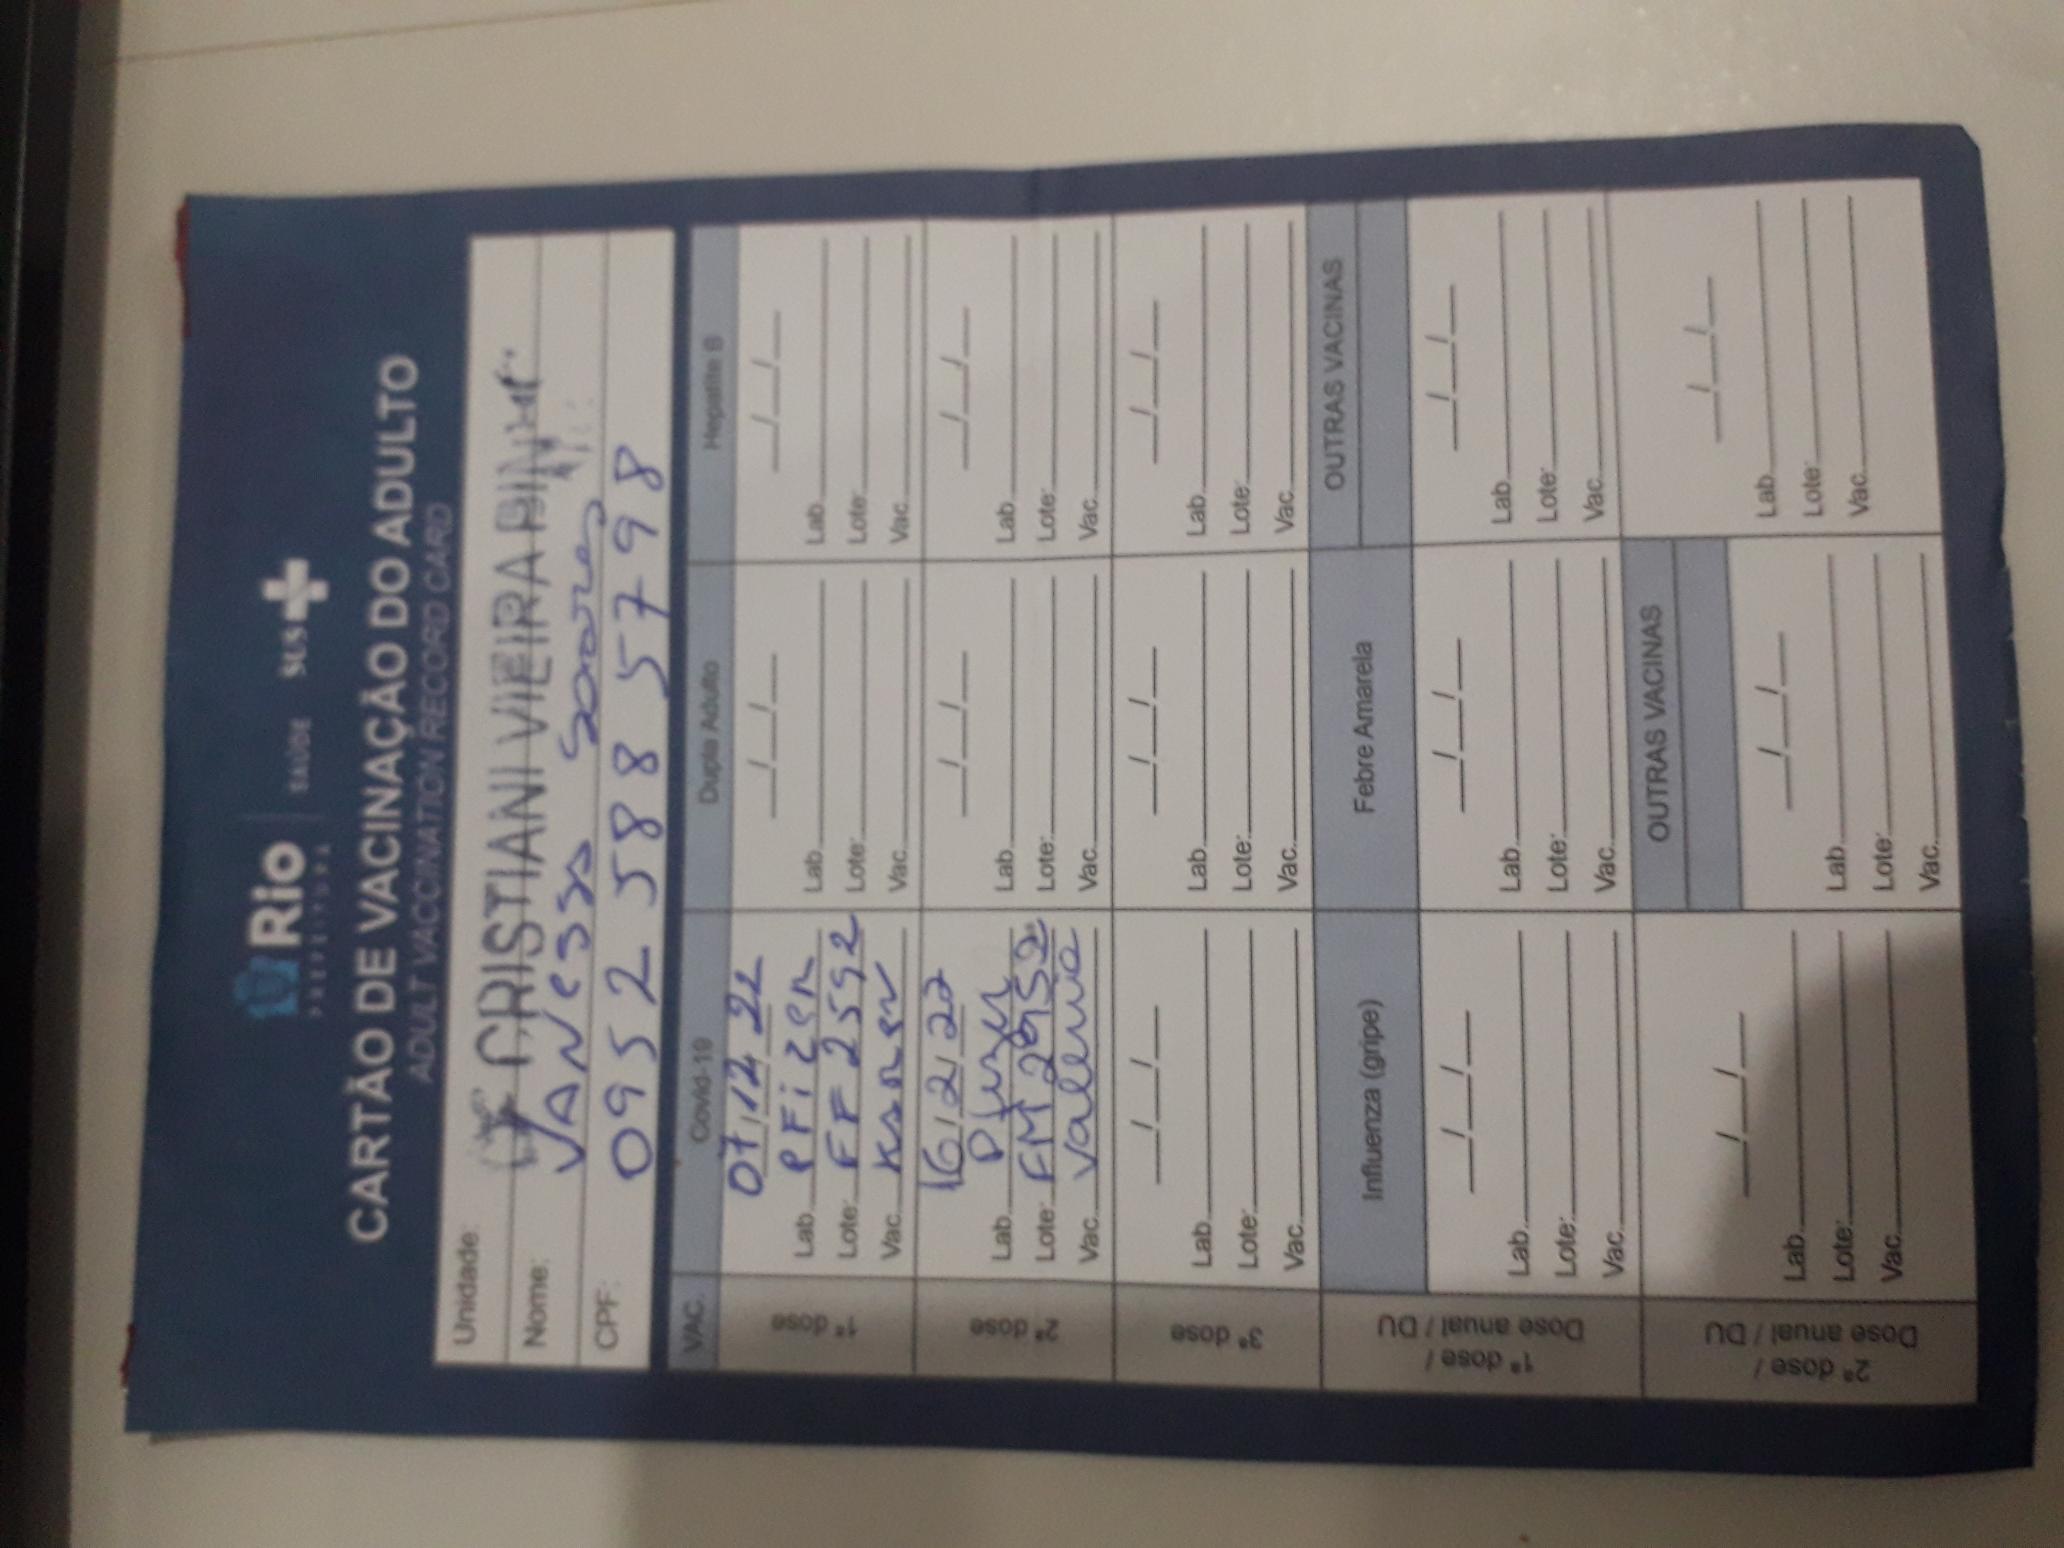 Rio
PREFEITURA
SAÚDE
SUS
CARTÃO DE VACINAÇÃO DO ADULTO
ADULT VACCINATION RECORD CARD
Unidade: CF CRISTIANI VIEIRA
Nome: VANessa Soares
CPF: 0952 588 5798
VAC. Covid-19 Dupla Adulto Hepatite B
1ª dose
07/12/22 __/__/__ __/__/__
Lab. PFizeR Lab. Lab.
Lote: FF 2592 Lote: Lote:
Vac. KaReN Vac. Vac.
2ª dose
16/2/22 __/__/__ __/__/__
Lab. Pfizer Lab. Lab.
Lote: FM 2952 Lote: Lote:
Vac. Valeria Vac. Vac.
3ª dose
__/__/__ __/__/__ __/__/__
Lab. Lab. Lab.
Lote: Lote: Lote:
Vac. Vac. Vac.
Influenza (gripe) Febre Amarela OUTRAS VACINAS
1ª dose /
Dose anual / DU
__/__/__ __/__/__ __/__/__
Lab. Lab. Lab.
Lote: Lote: Lote:
Vac. Vac. Vac.
2ª dose /
Dose anual / DU
__/__/__
Lab.
Lote:
Vac.
OUTRAS VACINAS
__/__/__
Lab.
Lote:
Vac.
__/__/__
Lab.
Lote:
Vac.